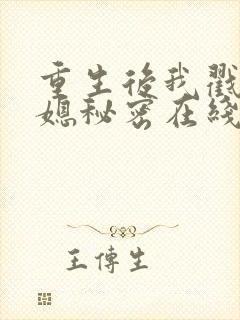 重生后我戳
媳秘密在线
王传生